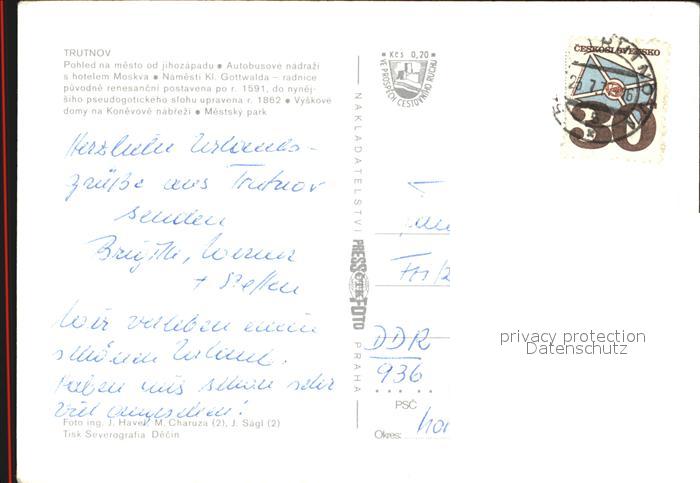 TRUTNOV
Pohled na město od jihozápadu • Autobusové nádraží
s hotelem Moskva • Náměstí Kl. Gottwalda – radnice
původně renesanční postavena po r. 1591, do nyněj-
šího pseudogotického slohu upravena r. 1862 • Výškové
domy na Koněvově nábřeží • Městský park
Herzliche Urlaubs-
grüße aus Trutnov
senden
Brigitte, Werner
+ Steffen
Wir verleben einen
schönen Urlaub.
Haben uns schon sehr
viel angesehen!
Foto ing. J. Havel, M. Charuza (2), J. Ságl (2)
Tisk Severografia Děčín
Kčs 0,20
VE PROSPĚCH CESTOVNÍHO RUCHU
NAKLADATELSTVÍ PRESSFOTO PRAHA
ČESKOSLOVENSKO
30
DDR
936
PSČ
Okres:
privacy protection
Datenschutz